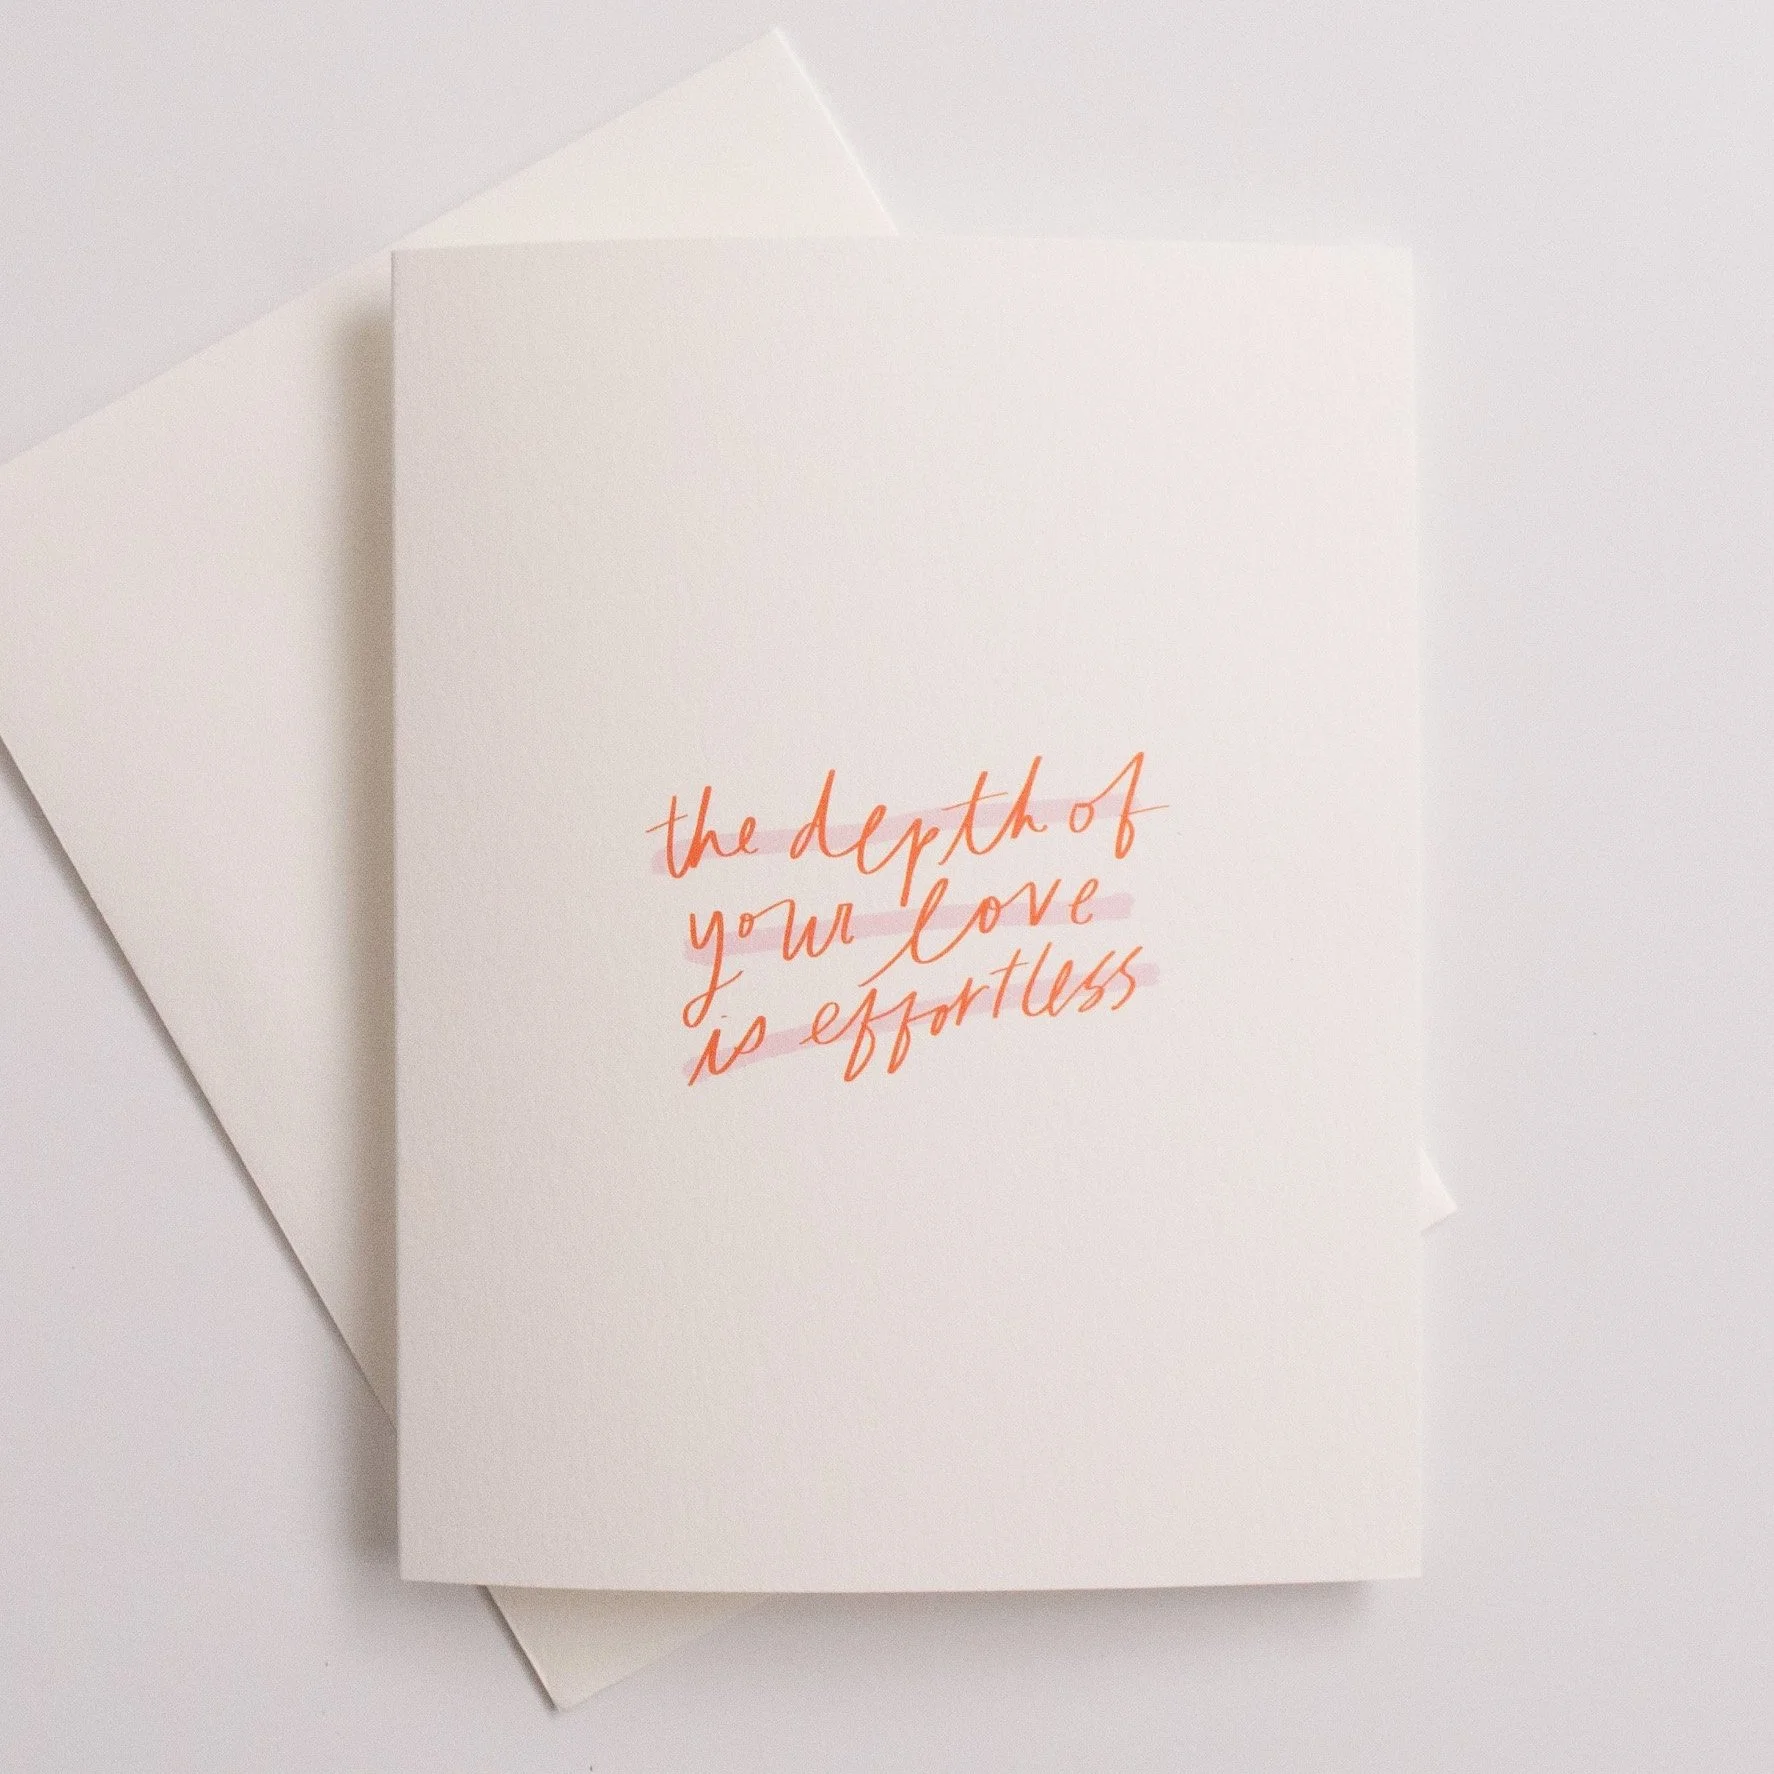 the depth of
your love
is effortless